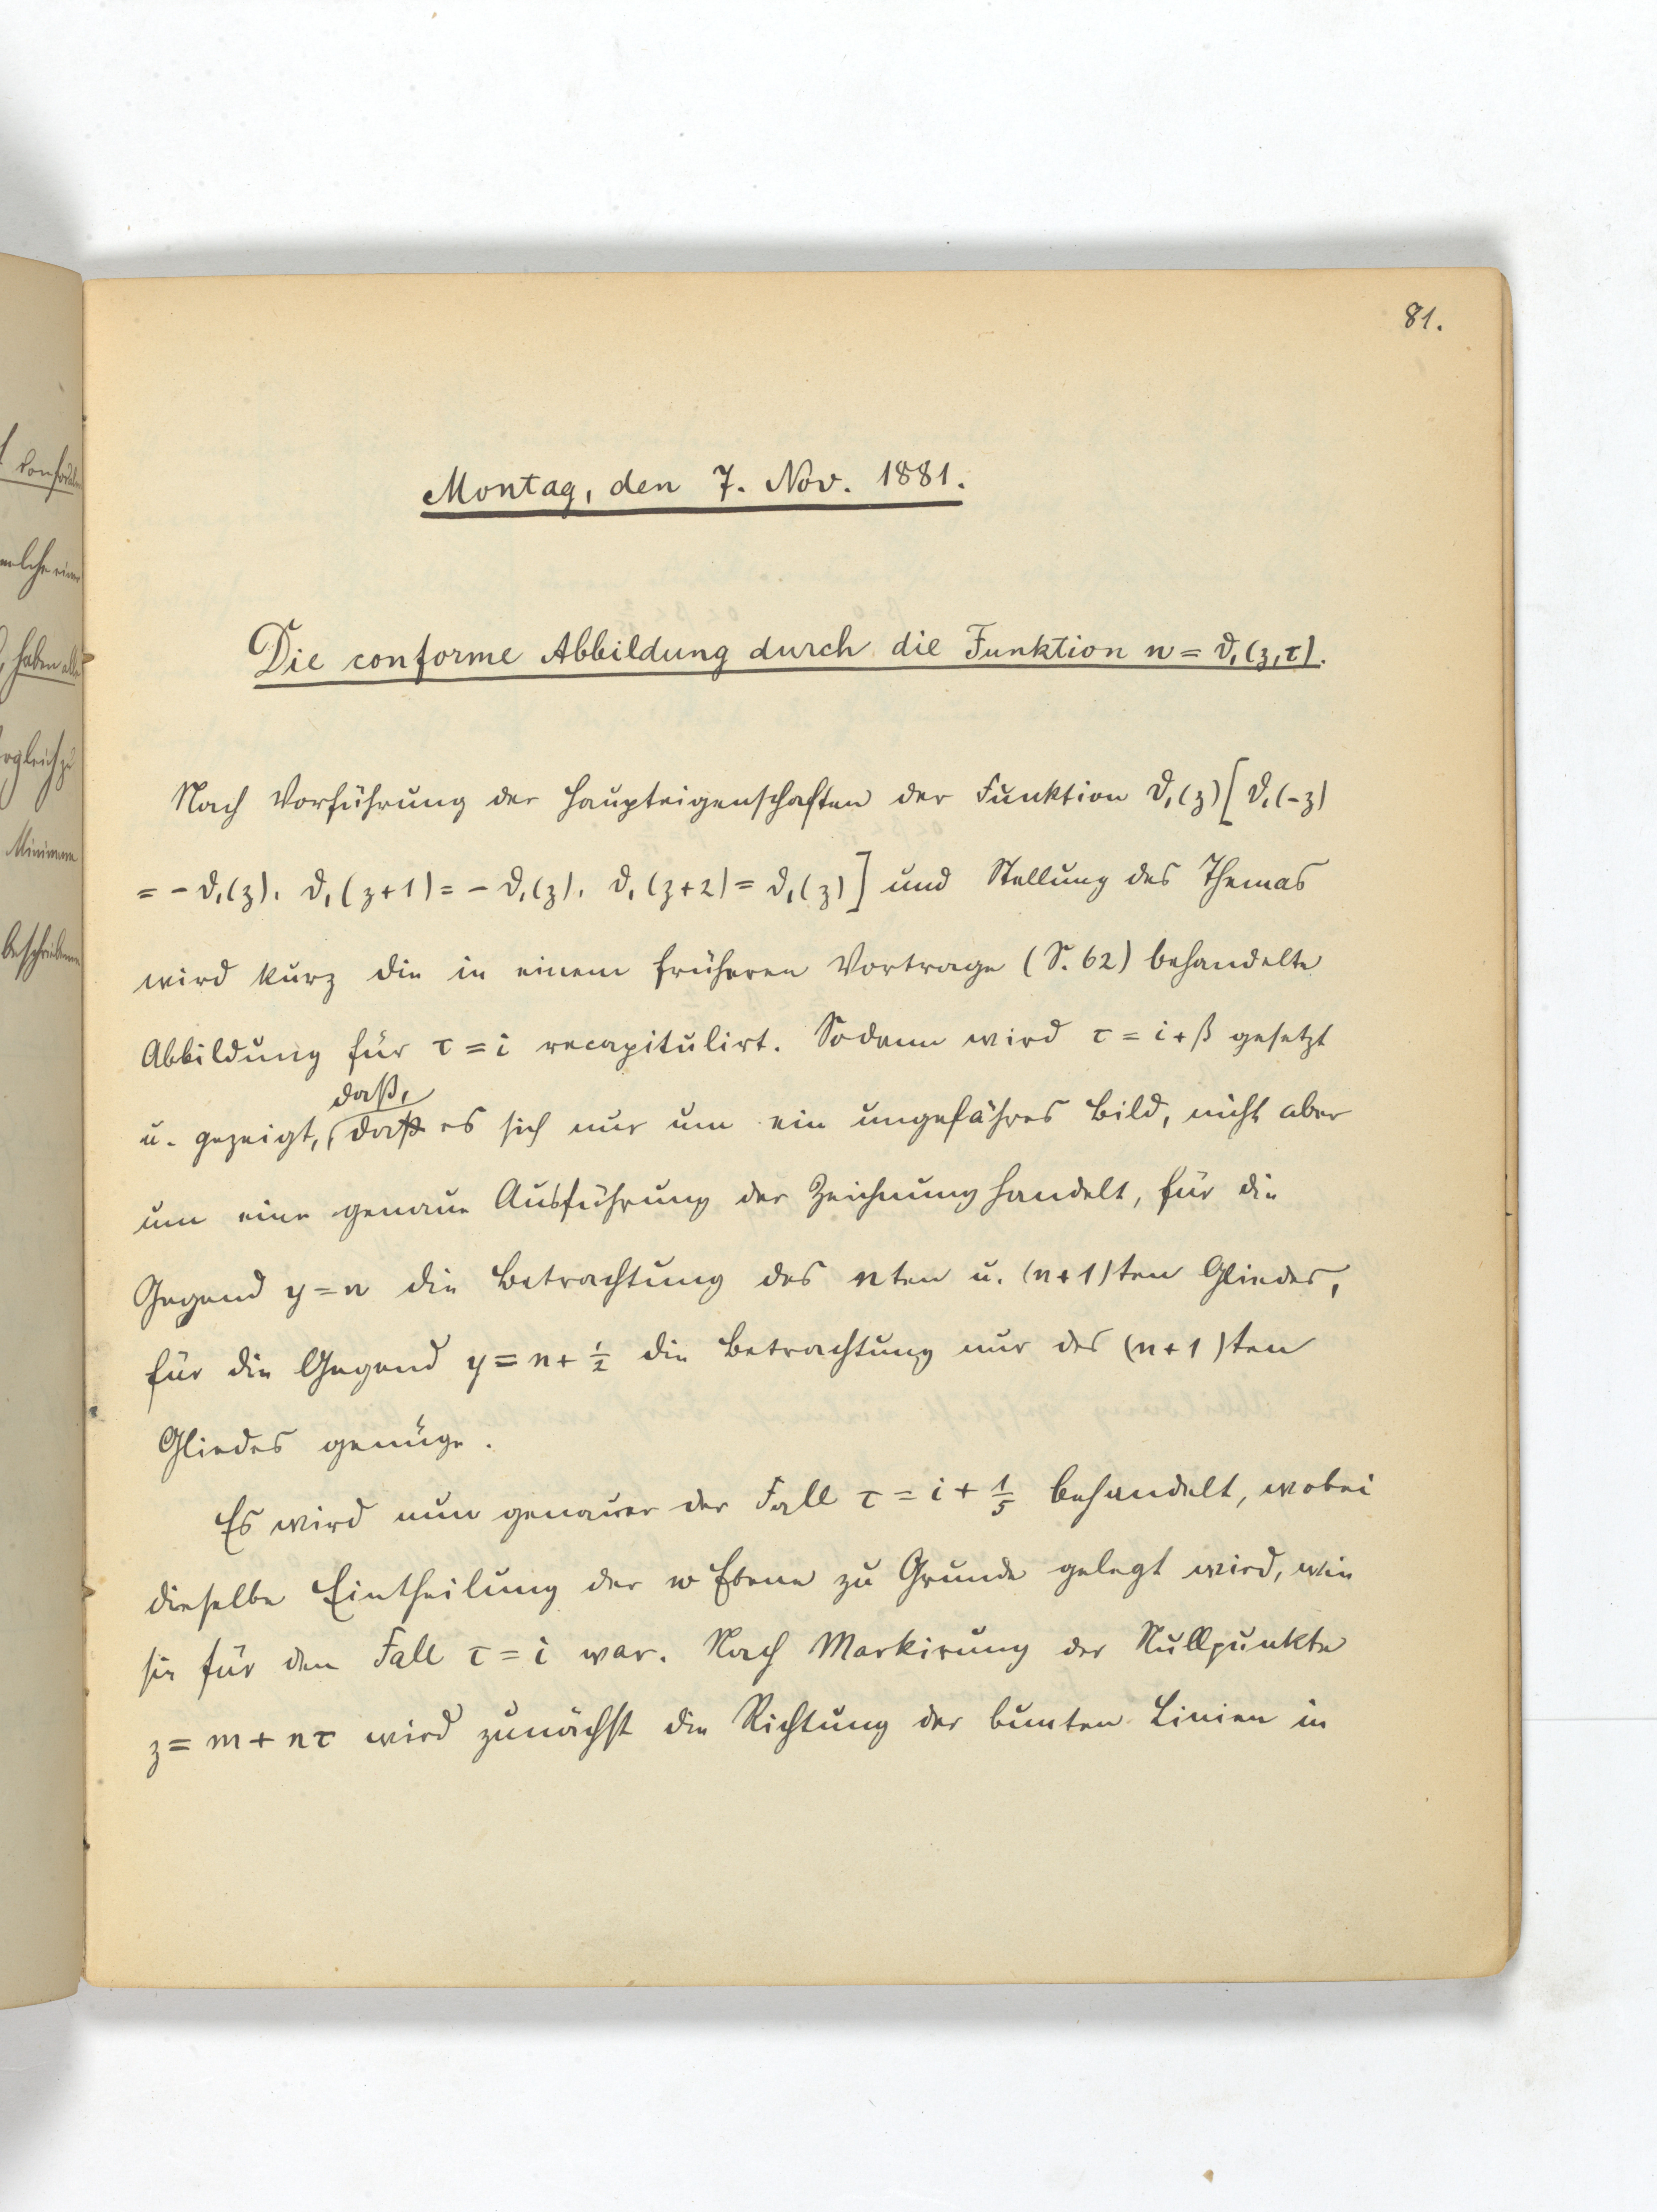 81.
Montag, den 7. Nov. 1881.
Die conforme Abbildung durch die Funktion w = ϑ₁(z,τ).
Nach Vorführung der Haupteigenschaften der Funktion ϑ₁(z) [ϑ₁(-z)
= - ϑ₁(z), ϑ₁(z+1) = - ϑ₁(z), ϑ₁(z+2) = ϑ₁(z)] und Stellung des Themas
wird kurz die in einem früheren Vortrage (S. 62) behandelte
Abbildung für τ = i recapitulirt. Sodann wird τ = i + β gesetzt
daß,
u. gezeigt, daß es sich nur um ein ungefähres Bild, nicht aber
um eine genaue Ausführung der Zeichnung handelt, für die
Gegend y = n die Betrachtung des nten u. (n+1)ten Gliedes,
für die Gegend y = n + ½ die Betrachtung nur des (n+1)ten
Gliedes genüge.
Es wird nun genauer der Fall τ = i + 1/5 behandelt, wobei
dieselbe Eintheilung der w Ebene zu Grunde gelegt wird, wie
sie für den Fall τ = i war. Nach Markirung der Nullpunkte
z = m + nτ wird zunächst die Richtung der bunten Linien in
welche einer
haben alle
Minimum